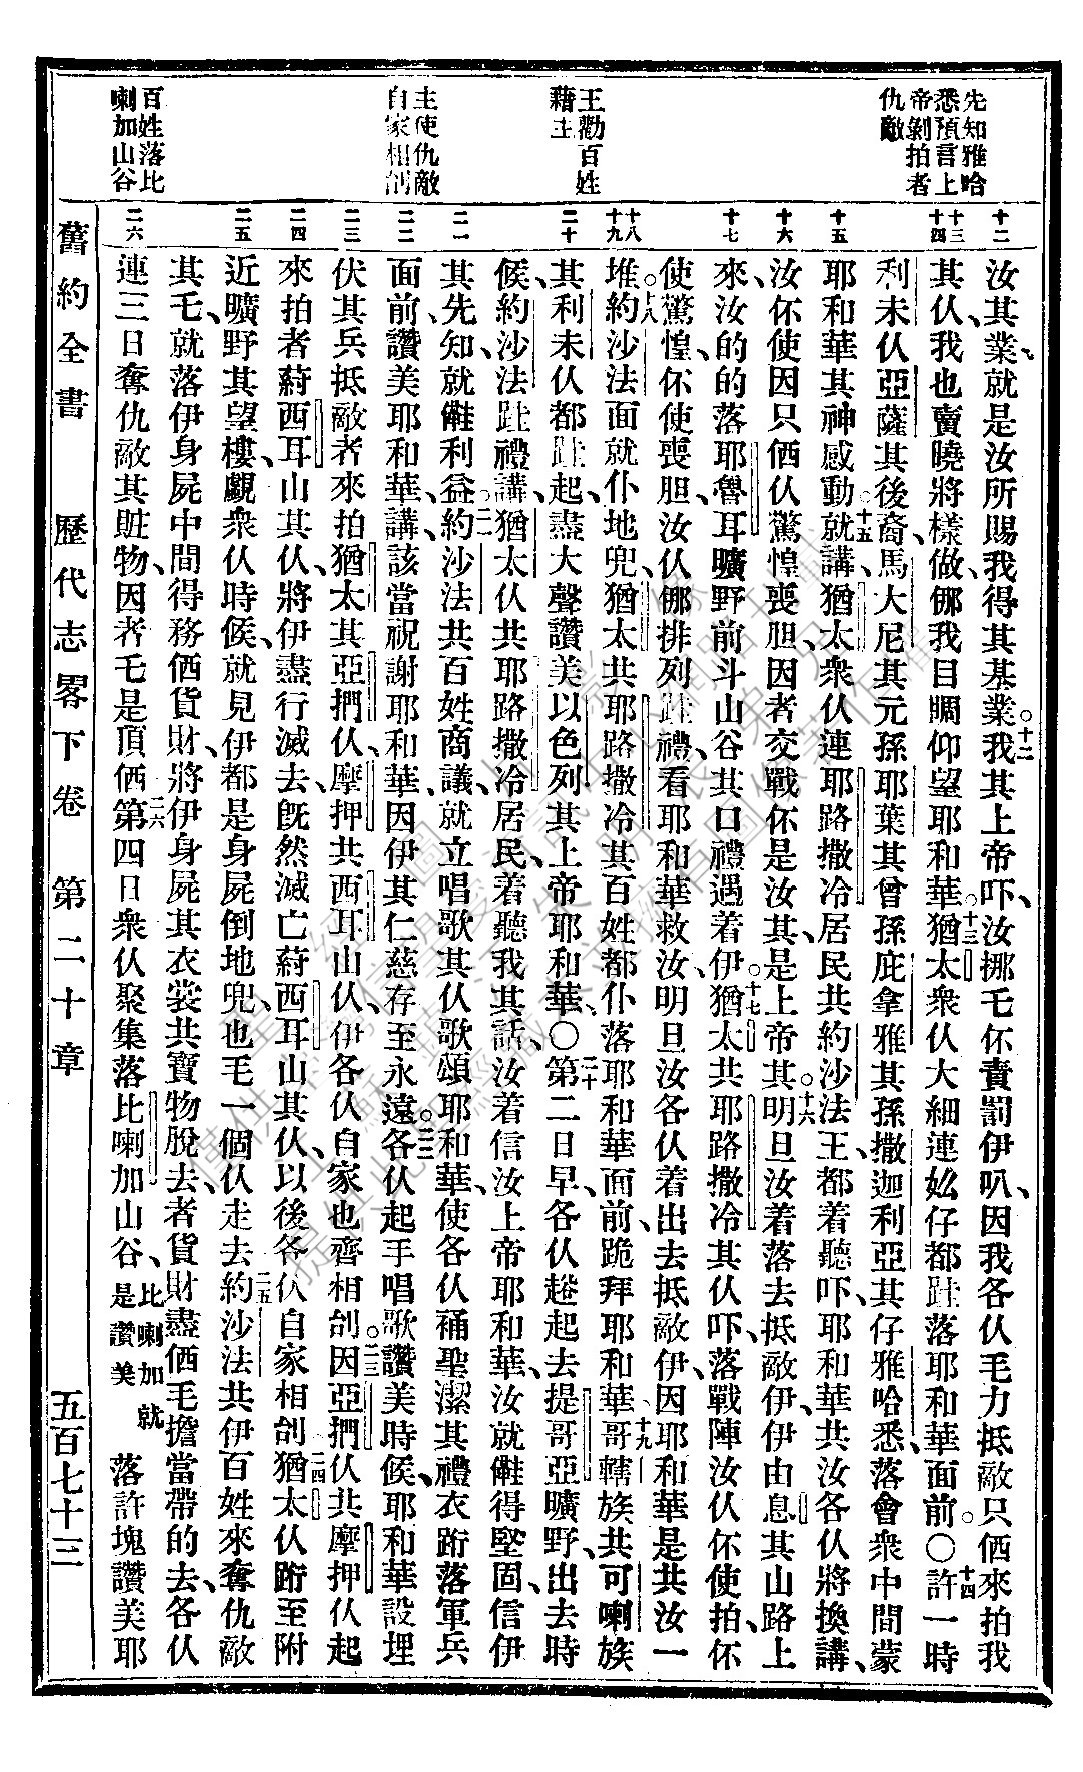 先知雅哈
悉預言上
帝剝拍者
仇敵
王勸百姓
藉主
主使仇敵
自家相刣
百姓落比
喇加山谷
十二
十三
十四
十五
十六
十七
十八
十九
二十
二一
二二
二三
二四
二五
二六
汝其業、就是汝所賜我得其基業。十二我其上帝吓、汝挪乇伓責罰伊叭、因我各仈乇力抵敵只俩來拍我
其仈、我也賣曉將樣做、伽我目睭仰望耶和華。十三猶太衆仈大細連奺仔都跬落耶和華面前。〇十四許一時
利未仈亞薩其後裔、馬大尼其元孫、耶葉其曾孫、庇拿雅其孫、撒迦利亞其仔雅哈悉、落會衆中間蒙
耶和華其神感動、十五就講、猶太衆仈、連耶路撒冷居民、共約沙法王、都着聽吓、耶和華共汝各仈將換講、
汝伓使因只俩仈驚惶喪胆、因者交戰伓是汝其、是上帝其。十六明旦汝着落去抵敵伊、伊由息其山路上
來、汝的的落耶魯耳曠野前斗山谷其口禮遇着伊。十七猶太共耶路撒冷其仈吓、落戰陣汝仈伓使拍、伓
使驚惶、伓使喪胆、汝仈㑚排列跬禮、看耶和華救汝、明旦汝各仈着出去抵敵伊、因耶和華是共汝一
堆。十八約沙法面就仆地兜、猶太共耶路撒冷其百姓、都仆落耶和華面前、跪拜耶和華。十九哥轄族共可喇族
其利未仈、都跬起、盡大聲讚美以色列其上帝耶和華。〇二十第二日早、各仈趒起去提哥亞曠野、出去時
候、約沙法跬禮講、猶太仈共耶路撒冷居民、着聽我其話、汝着信汝上帝耶和華、汝就㒓得堅固、信伊
其先知、就㒓利益。二一約沙法共百姓商議、就立唱歌其仈、歌頌耶和華、使各仈䘄聖潔其禮衣、跡落軍兵
面前、讚美耶和華、講、該當祝謝耶和華、因伊其仁慈存至永遠。二二各仈起手唱歌讚美時候、耶和華設埋
伏其兵、抵敵者來拍猶太其亞捫仈、摩押共西耳山仈、伊各仈自家也齊相刣。二三因亞捫仈共摩押仈起
來拍者蒔西耳山其仈、將伊盡行滅去、旣然滅亡蒔西耳山其仈、以後各仈自家相刣。二四猶太仈跡至附
近曠野其望樓、覷衆仈時候、就見伊都是身屍倒地兜、也乇一個仈走去。二五約沙法共伊百姓來奪仇敵
其乇、就落伊身屍中間得務俩貨財、將伊身屍其衣裳共寶物脫去、者貨財盡俩乇擔當帶的去、各仈
連三日奪仇敵其賍物、因者乇是頂俩。二六第四日衆仈聚集落比喇加山谷、比喇加就是讚美落許塊讚美耶
舊約全書　歷代志畧下卷　第二十章　五百七十三